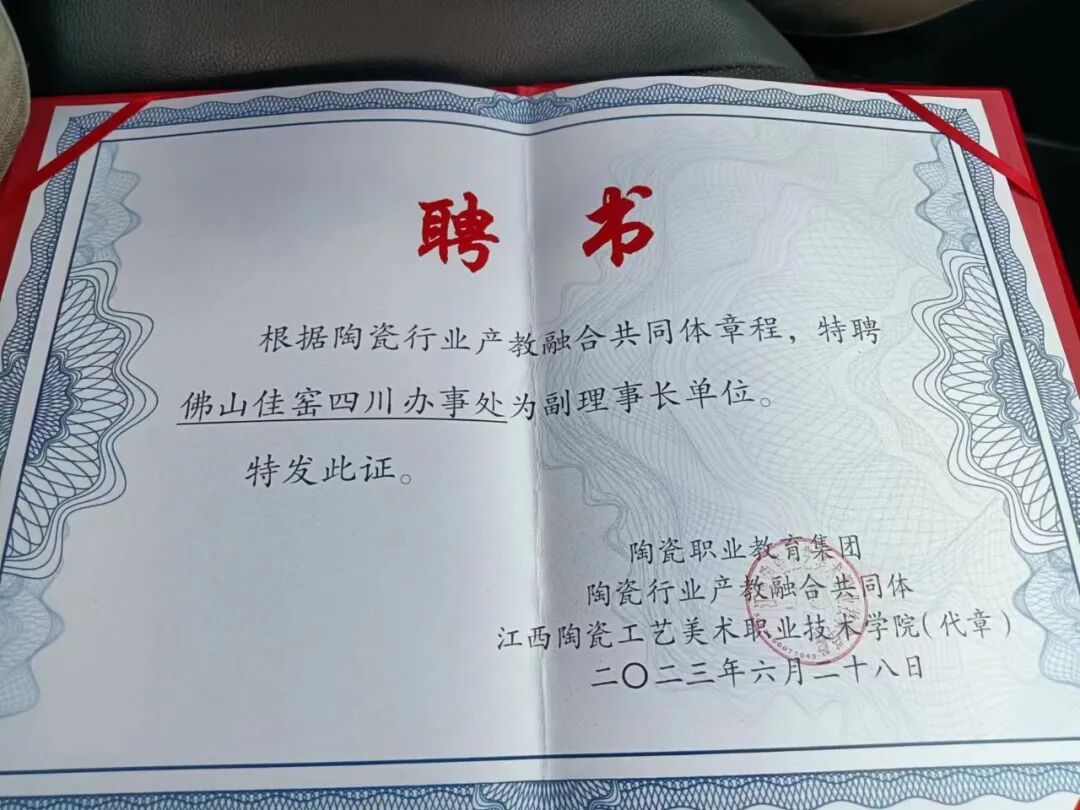 聘书
根据陶瓷行业产教融合共同体章程，特聘
佛山佳窑四川办事处为副理事长单位。
特发此证。
陶瓷职业教育集团
陶瓷行业产教融合共同体
江西陶瓷工艺美术职业技术学院（代章）
二〇二三年六月二十八日